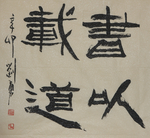 書以
載道
辛卯